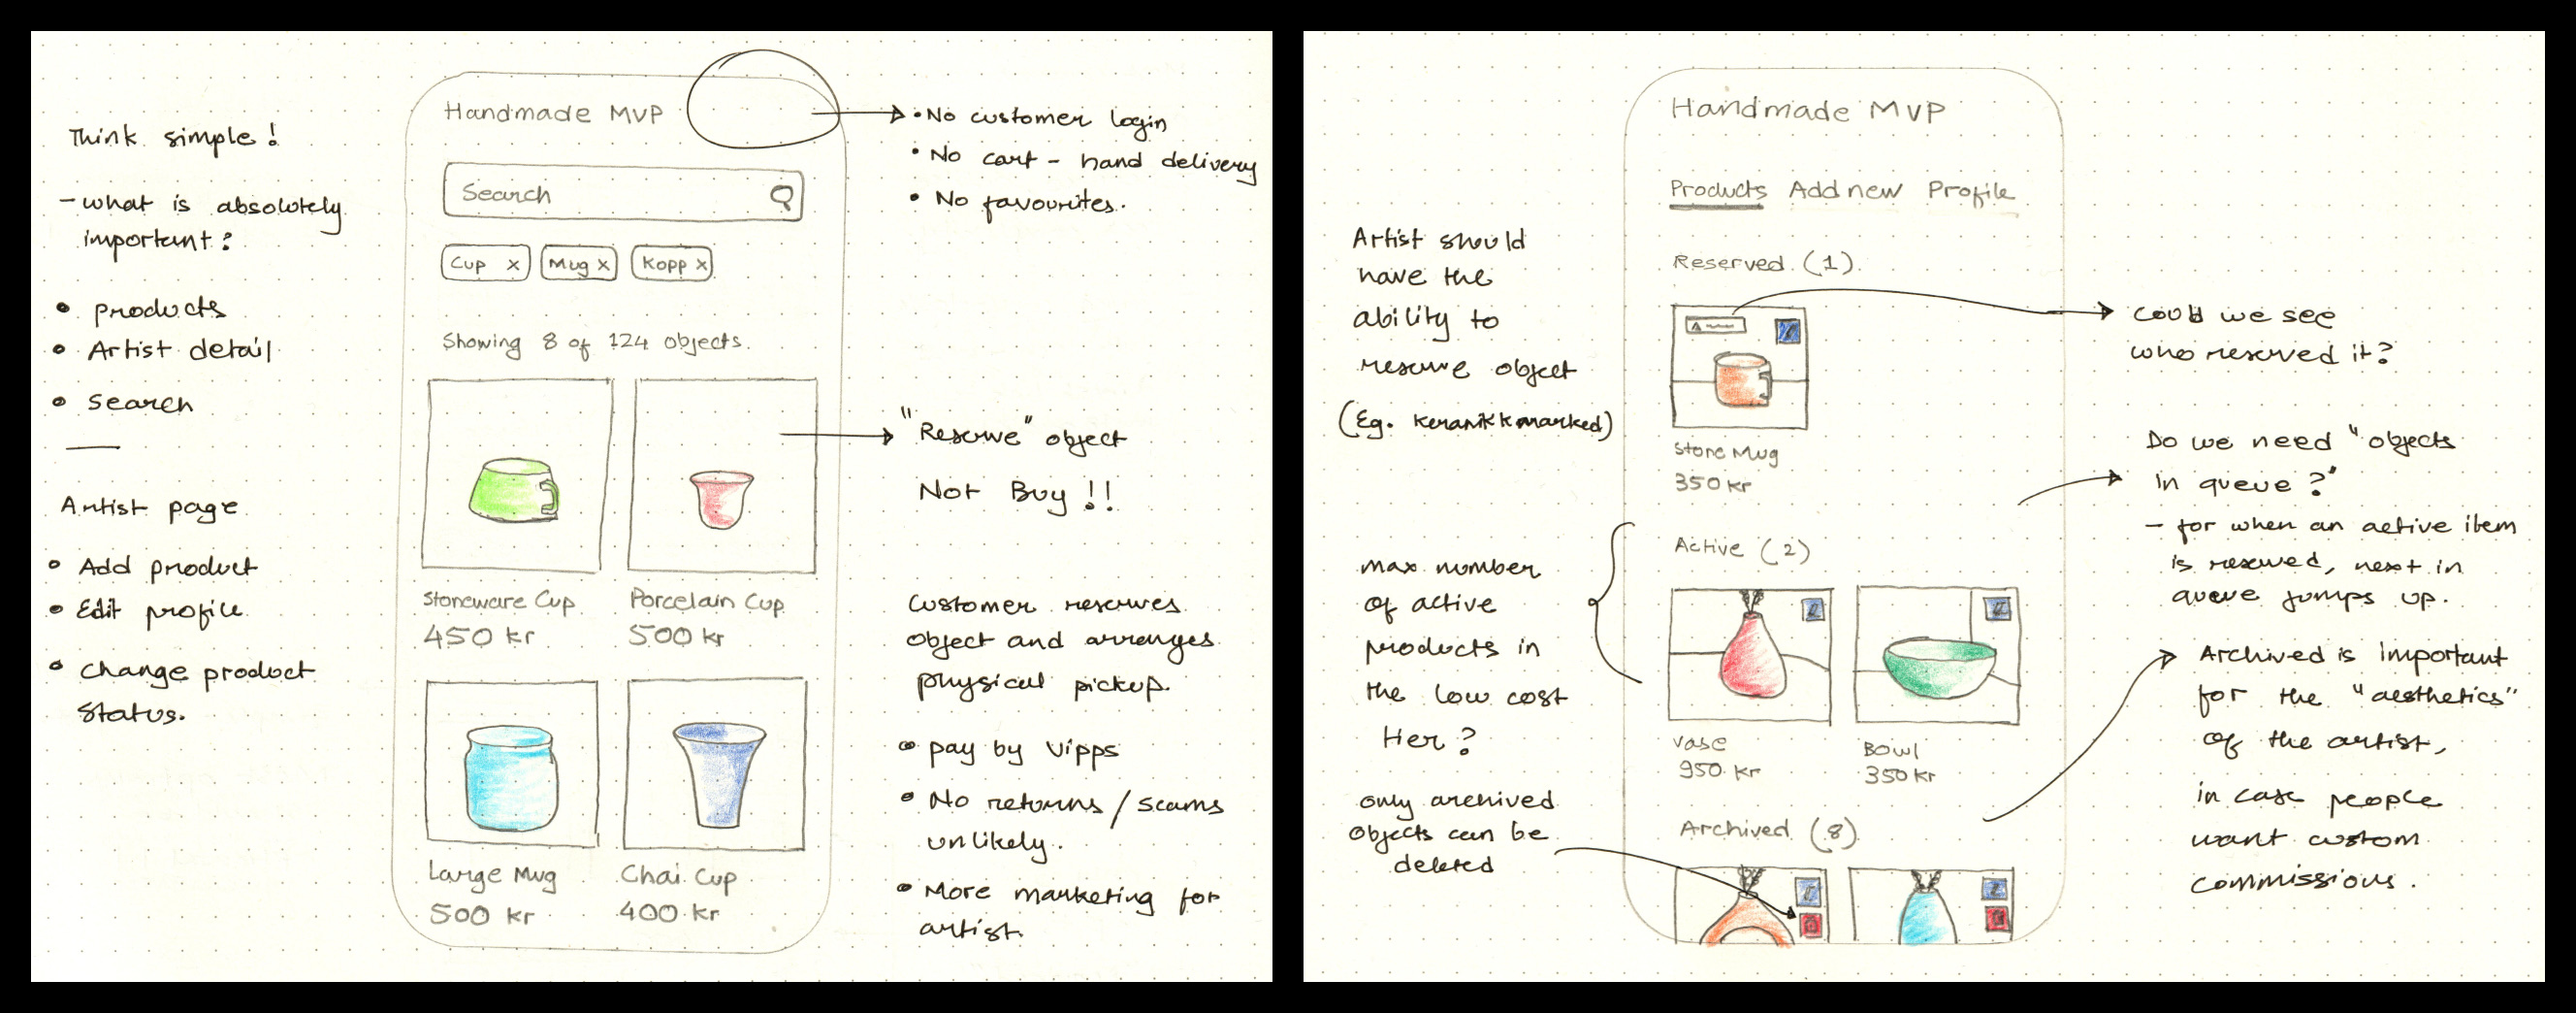 Think simple!
- what is absolutely
important?
• products
• Artist detail
• Search
Artist page
• Add product
• Edit profile
• Change product
Status.
Handmade MVP
Search
Cup x
Mug x
Kopp x
Showing 8 of 124 objects.
Stoneware Cup
450 kr
Porcelain Cup
500 kr
Large Mug
500 kr
Chai Cup
400 kr
• No customer login
• No cart - hand delivery
• No favourites.
"Reserve" object
Not Buy!!
Customer reserves
object and arranges
physical pickup.
• pay by Vipps
• No returns / scams
unlikely.
• More marketing for
artist.
Artist should
have the
ability to
reserve object
(Eg. keramikkmarked)
max number
of active
products in
the low cost
tier?
only archived
objects can be
deleted
Handmade MVP
Products Add new Profile
Reserved (1)
Stone Mug
350 kr
Active (2)
Vase
950 kr
Bowl
350 kr
Archived (8)
Could we see
who reserved it?
Do we need "objects
in queue?"
- for when an active item
is reserved, next in
queue jumps up.
Archived is important
for the "aesthetics"
of the artist,
in case people
want custom
commissions.